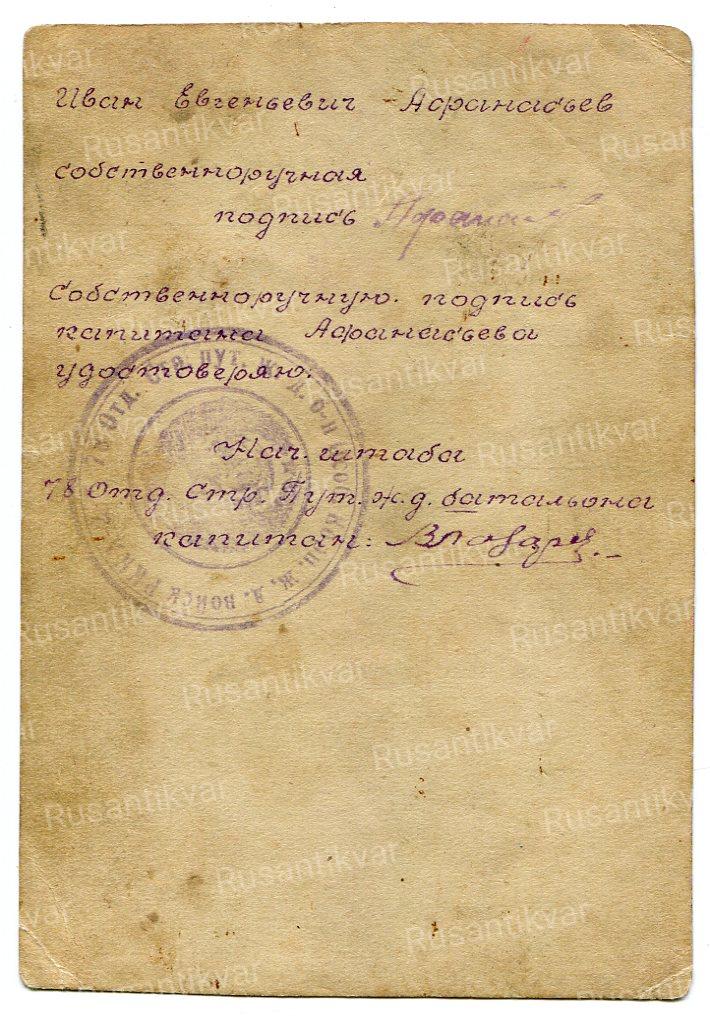 Иван Евгеньевич Афанасьев
собственноручная
подпись
Собственноручную подпись
капитана Афанасьева
удостоверяю.
Нач. штаба
78 Отд. Стр. Пут. ж.д. батальона
капитан:
Rusantikvar